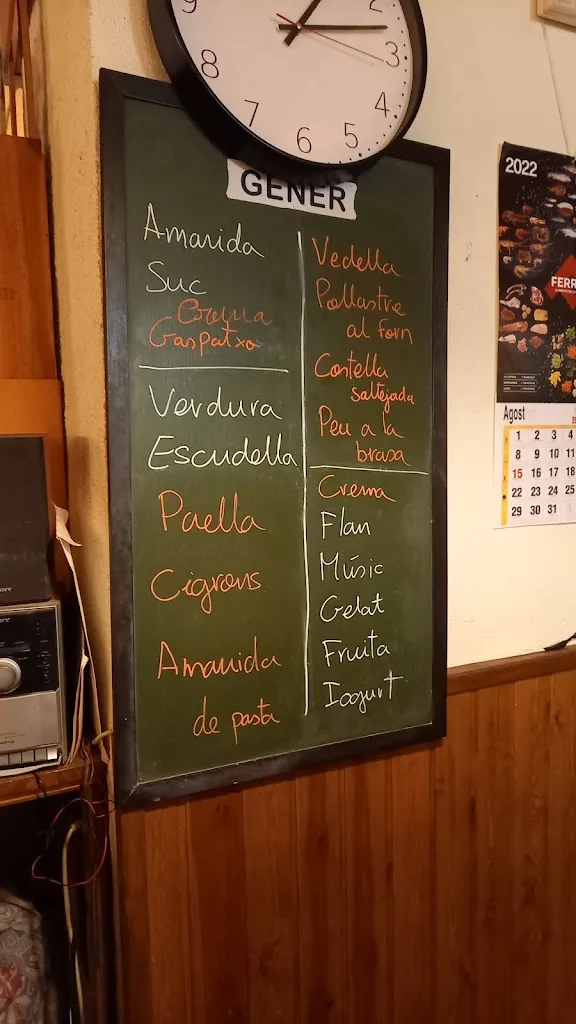 9
2
8
3
7
4
6
5
GENER
Amanida
Suc
Crema
Gaspatxo
Verdura
Escudella
Paella
Cigrons
Amanida
de pasta
Vedella
Pollastre
al forn
Costella
saltejada
Peu a la
brasa
Crema
Flan
Músic
Gelat
Fruita
Iogurt
2022
FERR
Agost
1 2 3 4
8 9 10 11
15 16 17 18
22 23 24 25
29 30 31
SONY